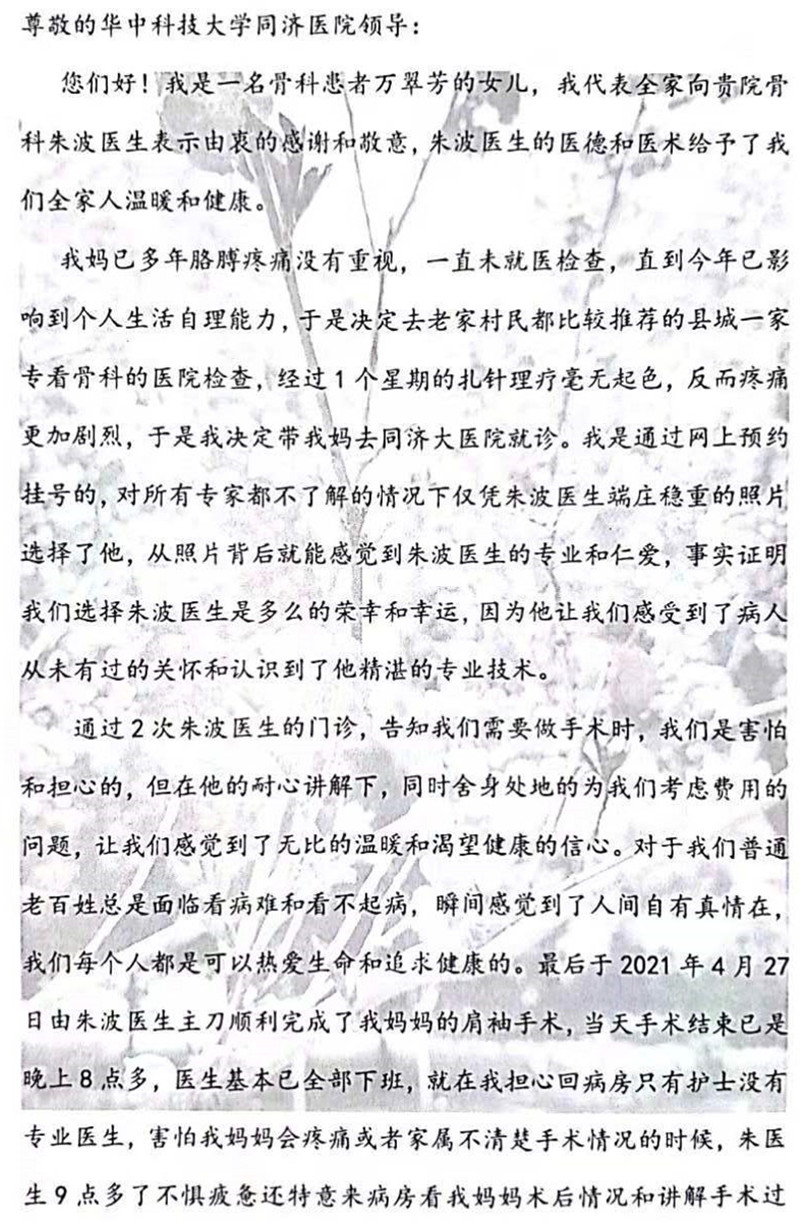 尊敬的华中科技大学同济医院领导：
您们好！我是一名骨科患者万翠芳的女儿，我代表全家向贵院骨
科朱波医生表示由衷的感谢和敬意，朱波医生的医德和医术给予了我
们全家人温暖和健康。
我妈已多年胳膊疼痛没有重视，一直未就医检查，直到今年已影
响到个人生活自理能力，于是决定去老家村民都比较推荐的县城一家
专看骨科的医院检查，经过1个星期的扎针理疗毫无起色，反而疼痛
更加剧烈，于是我决定带我妈去同济大医院就诊。我是通过网上预约
挂号的，对所有专家都不了解的情况下仅凭朱波医生端庄稳重的照片
选择了他，从照片背后就能感觉到朱波医生的专业和仁爱，事实证明
我们选择朱波医生是多么的荣幸和幸运，因为他让我们感受到了病人
从未有过的关怀和认识到了他精湛的专业技术。
通过2次朱波医生的门诊，告知我们需要做手术时，我们是害怕
和担心的，但在他的耐心讲解下，同时舍身处地的为我们考虑费用的
问题，让我们感觉到了无比的温暖和渴望健康的信心。对于我们普通
老百姓总是面临看病难和看不起病，瞬间感觉到了人间自有真情在，
我们每个人都是可以热爱生命和追求健康的。最后于2021年4月27
日由朱波医生主刀顺利完成了我妈妈的肩袖手术，当天手术结束已是
晚上8点多，医生基本已全部下班，就在我担心回病房只有护士没有
专业医生，害怕我妈妈会疼痛或者家属不清楚手术情况的时候，朱医
生9点多了不惧疲惫还特意来病房看我妈妈术后情况和讲解手术过